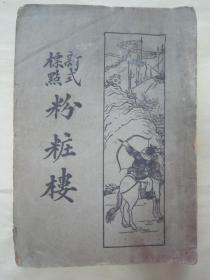 新式
標點
粉粧樓